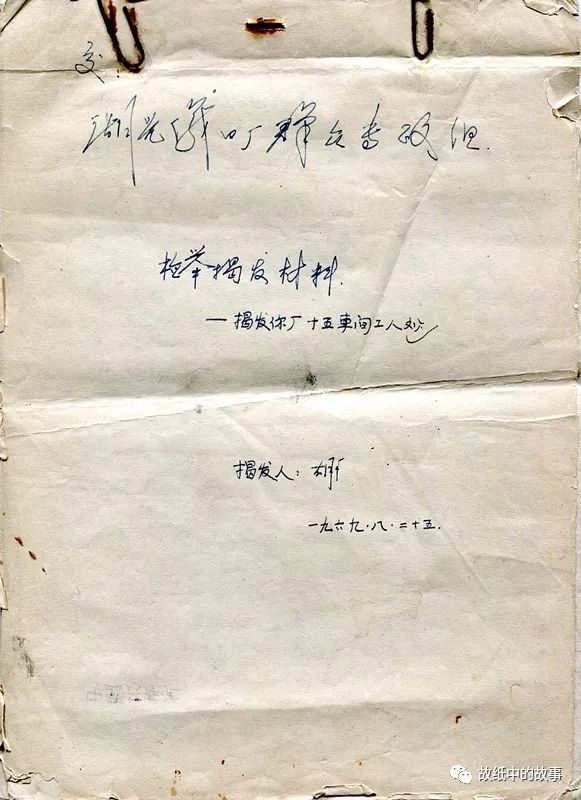 交:
湖光仪叮群众专政组.
检举揭发材料.
—揭发你厂十五車间工人刘
揭发人:
一九六九.八.二十五.
故纸中的故事